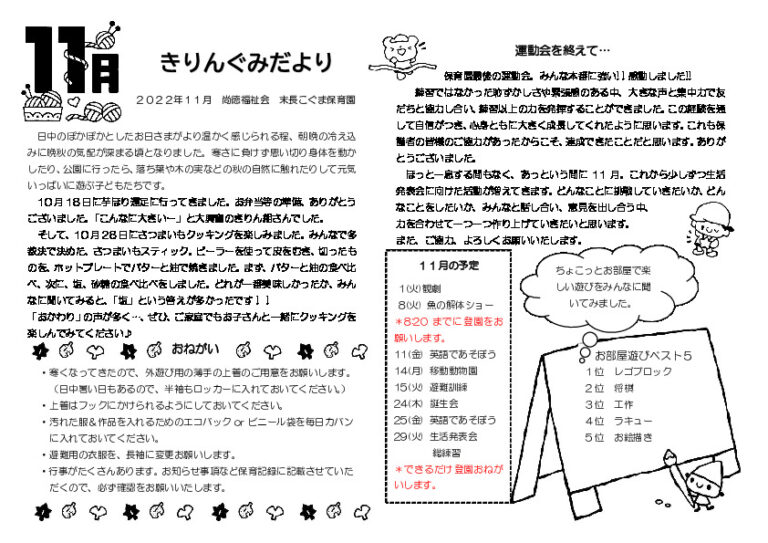 11月
きりんぐみだより
2022年11月　尚徳福祉会　末長こぐま保育園
日中のぽかぽかとしたお日さまがより温かく感じられる程、朝晩の冷え込
みに晩秋の気配が深まる頃となりました。寒さに負けず思い切り身体を動か
したり、公園に行ったら、落ち葉や木の実などの秋の自然に触れたりして元気
いっぱいに遊ぶ子どもたちです。
10月18日に芋ほり遠足に行ってきました。お弁当等の準備、ありがとう
ございました。「こんなに大きいー」と大興奮のきりん組さんでした。
そして、10月28日にさつまいもクッキングを楽しみました。みんなで多
数決で決めた、さつまいもスティック。ピーラーを使って皮をむき、切ったも
のを、ホットプレートでバターと油で焼きました。まず、バターと油の食べ比
べ、次に、塩、砂糖の食べ比べをしました。どれが一番美味しかったか、みん
なに聞いてみると、「塩」という答えが多かったです！！
「おかわり」の声が多く…、ぜひ、ご家庭でもお子さんと一緒にクッキングを
楽しんでみてください♪
おねがい
・寒くなってきたので、外遊び用の薄手の上着のご用意をお願いします。
（日中暑い日もあるので、半袖もロッカーに入れておいてください。）
・上着はフックにかけられるようにしておいてください。
・汚れた服＆作品を入れるためのエコバック or ビニール袋を毎日カバン
に入れておいてください。
・避難用の衣服を、長袖に変更お願いします。
・行事がたくさんあります。お知らせ事項など保育記録に記載させていた
だくので、必ず確認をお願いいたします。
運動会を終えて…
保育園最後の運動会。みんな本番に強い！！感動しました!!
練習ではなかった恥ずかしさや緊張感のある中、大きな声と集中力で友
だちと協力し合い、練習以上の力を発揮することができました。この経験を通
して自信がつき、心身ともに大きく成長してくれたように思います。これも保
護者の皆様のご協力があったからこそ、達成できたことだと思います。ありが
とうございました。
ほっと一息する間もなく、あっという間に 11 月。これから少しずつ生活
発表会に向けた活動が増えてきます。どんなことに挑戦していきたいか、どん
なことをしたいか、みんなと話し合い、意見を出し合う中、
力を合わせて一つ一つ作り上げていきたいと思います。
また、ご協力、よろしくお願いいたします。
11月の予定
1(火)観劇
8(火) 魚の解体ショー
＊8:20 までに登園をお
願いします。
11(金) 英語であそぼう
14(月) 移動動物園
15(火) 避難訓練
24(木) 誕生会
25(金) 英語であそぼう
29(火) 生活発表会
総練習
＊できるだけ登園おねが
いします。
ちょこっとお部屋で楽
しい遊びをみんなに聞
いてみました。
お部屋遊びベスト5
1位　レゴブロック
2位　将棋
3位　工作
4位　ラキュー
5位　お絵描き